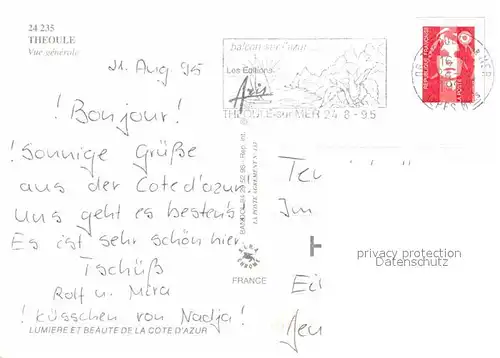 24 235
THEOULE
Vue générale
21. Aug 95
! Bonjour!
! Sonnige Grüße
aus der Cote d'azur!
Uns geht es bestens
Es ist sehr schön hier
Tschüß
Rolf u. Mira
! Küsschen von Nadja!
LUMIERE ET BEAUTE DE LA COTE D'AZUR
balcon sur l'azur...
Les Editions
Aris
THEOULE-sur-MER 24 8-95
REPUBLIQUE FRANCAISE
LA POSTE
BANDOL 94 29 52 98 - Rep. int.
FRANCE
Im
H
privacy protection
Datenschutz
Ei
Jen